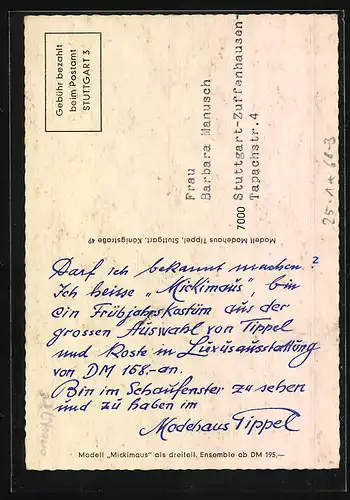 Gebühr bezahlt
beim Postamt
STUTTGART 3
Frau
Barbara Manusch
7000 Stuttgart-Zuffenhausen-
Tapachstr.4
Modell Modehaus Tippel, Stuttgart, Königstraße 49
Darf ich bekannt machen?
Ich heisse „Mickimaus", bin
ein Frühjahrskostüm aus der
grossen Auswahl von Tippel
und koste in Luxusausstattung
von DM 168.-an.
Bin im Schaufenster zu sehen
und zu haben im
Modehaus Tippel
Modell „Mickimaus" als dreiteil. Ensemble ab DM 195,—